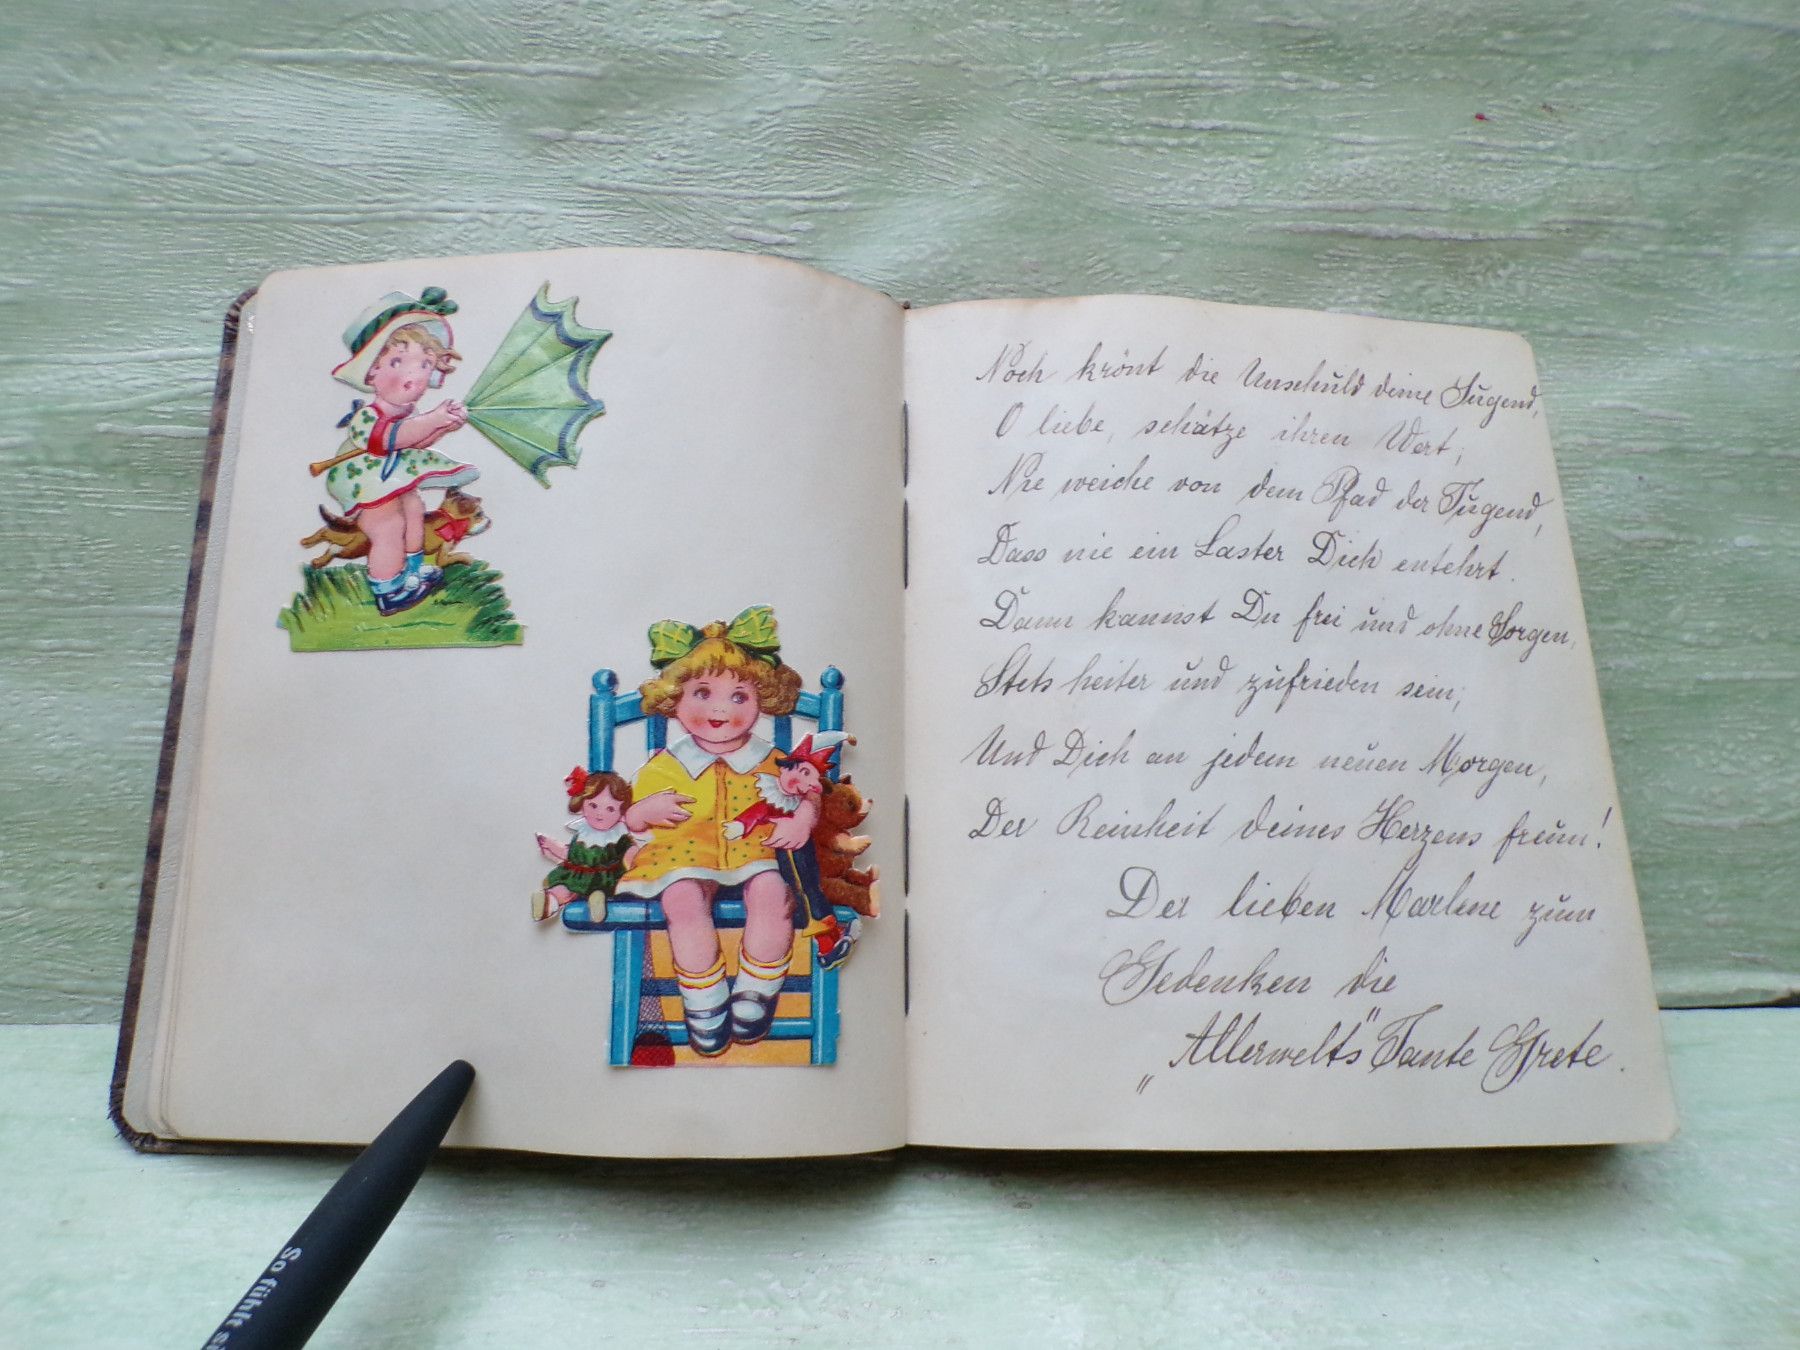 Noch krönt die Unschuld deine Jugend,
O liebe, schätze ihren Wert;
Nie weiche von dem Pfad der Tugend,
Dass nie ein Laster Dich entehrt.
Dann kannst Du frei und ohne Sorgen,
Stets heiter und zufrieden sein;
Und Dich an jedem neuen Morgen,
Der Reinheit deines Herzens freun!
Der lieben Marlene zum
Gedenken die
„Allerwelts" Tante Grete.
So fühlt si